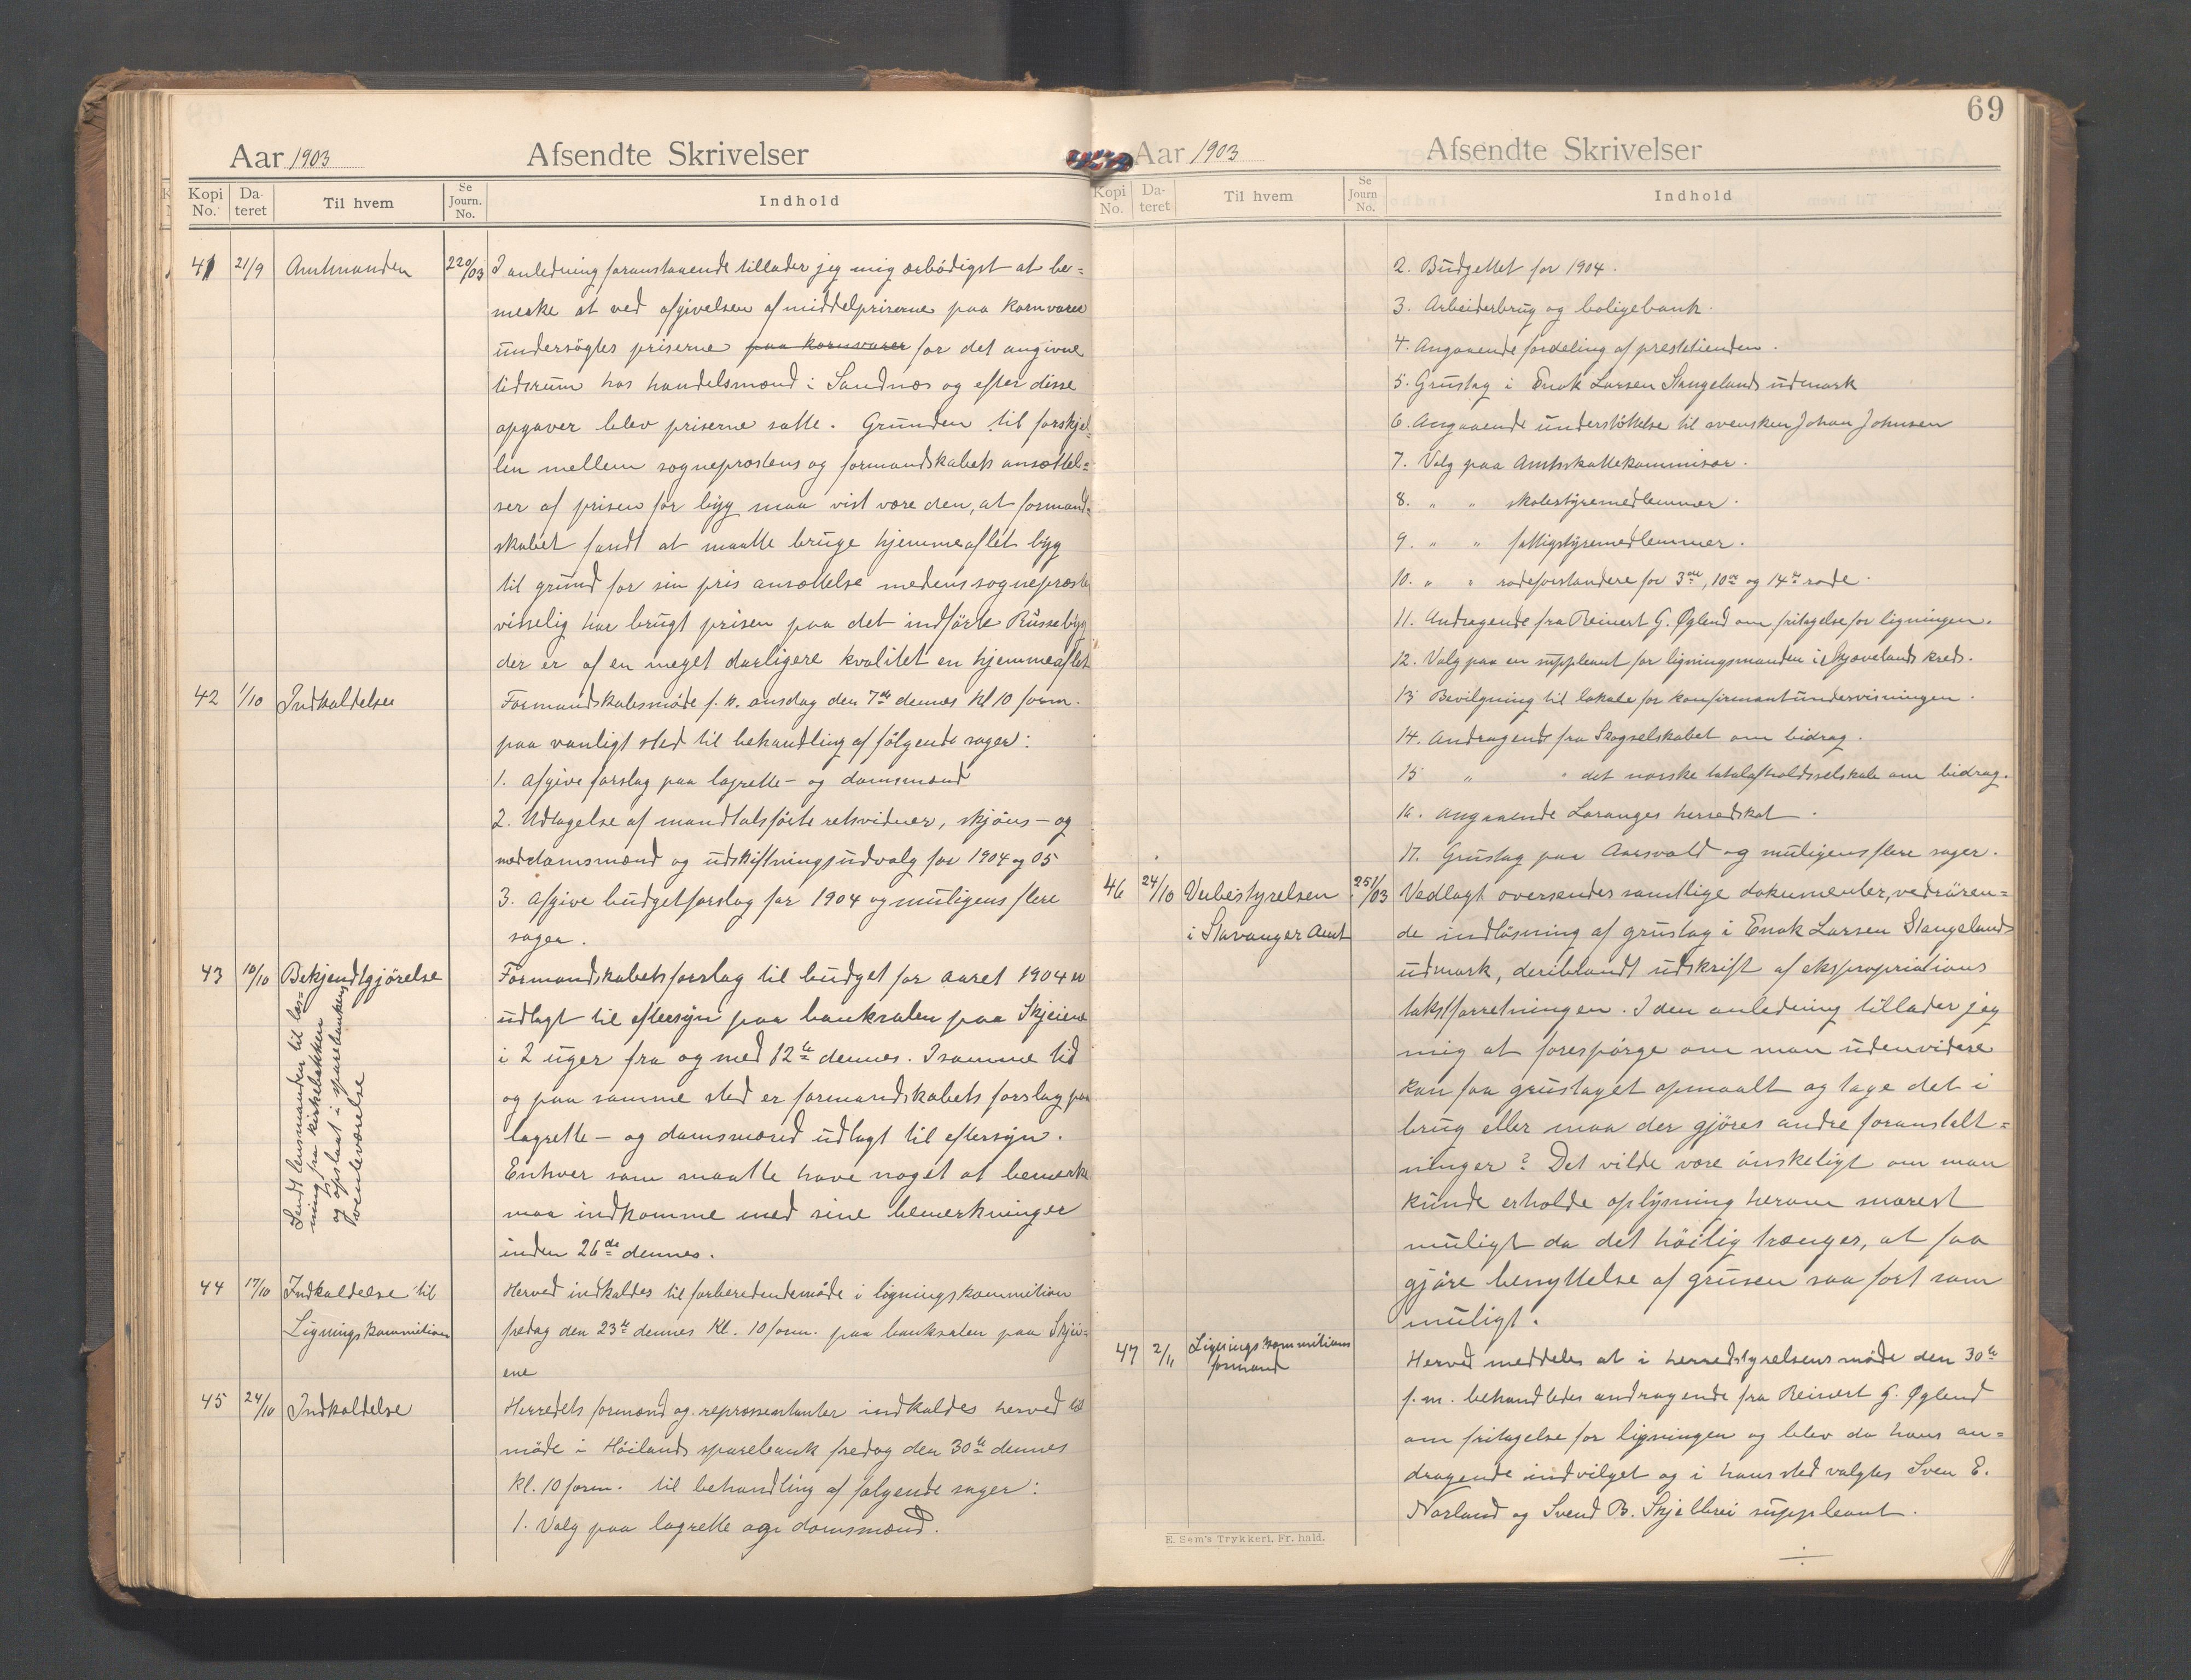 Aar 1903 Afsendte Skrivelser
Kopi No. Da- teret Til hvem Se Journ. No. Indhold
41 21/9 Amtmanden 220/03 I anledning foranstaaende tillader jeg mig ærbödigst at be=
merke at ved afgivelsen af middelpriserne paa kornvarer
undersögtes priserne paa kornvarer for det angivne
tidsrum hos handelsmænd i Sandnæs og efter disse
opgaver blev priserne satte. Grunden til forskjel=
len mellem sogneprestens og formandskabets ansættel=
ser af prisen for byg maa vist være den, at formand=
skabet fandt at maatte bruge hjemmeaflet byg
til grund for sin pris ansættelse medens sognepresten
visselig har brugt prisen paa det indförte Russebyg
der er af en meget darligere kvalitet en hjemmeaflet
42 1/10 Indkaldelse Formandskabsmöde f. k. onsdag den 7de dennes kl 10 form.
paa vanligt sted til behandling af fölgende sager:
1. Afgive forslag paa lagrette- og domsmænd
2. Udtagelse af mandtalsförte retsvidner, skjöns- og
meddomsmænd og udskiftningsudvalg for 1904 og 05
3. Afgive budgetforslag for 1904 og muligens flere
sager.
43 10/10 Bekjendtgjörelse Formandskabets forslag til budget for aaret 1904 er
udlagt til eftersyn paa banksalen paa Skjeiene
i 2 uger fra og med 12te dennes. I samme tid
og paa samme sted er formandskabets forslag paa
lagrette- og domsmænd udlagt til eftersyn.
Enhver som maatte have noget at bemerke
maa indkomme med sine bemerkninger
inden 26de dennes.
Sendt lensmanden til læs=
ning paa kirkebakken
og opslaat i sparebankens
venteværelse
44 17/10 Indkaldelse til Herved indkaldes til forberedendemöde i ligningskommition
Ligningskommition fredag den 23de dennes Kl. 10 form. paa banksalen paa Skjei=
ene
45 24/10 Indkaldelse Herredets formænd og repræsentanter indkaldes herved til
möde i Höilands sparebank fredag den 30te dennes
kl. 10 form. til behandling af folgende sager:
1. Valg paa lagrette og domsmænd.
69
Aar 1903 Afsendte Skrivelser
Kopi No. Da- teret Til hvem Se Journ No. Indhold
2. Budgettet for 1904.
3. Arbeiderbrug og boligebank.
4. Angaaende fordeling af prestetienden.
5. Grustag i Enok Larsen Stangelands udmark
6. Angaaende understöttelse til svensken Johan Johnsen
7. Valg paa Amtsskattekommisær.
8. " " skolestyremedlemmer.
9. " " fattigstyremedlemmer.
10. " " rodeforstandere for 3die, 10de og 14de rode.
11. Andragende fra Reinert G. Øglend om fritagelse for ligningen.
12. Valg paa en suppleant for ligningsmanden i Skjævelands kreds.
13 Bevilgning til lokale for konfirmantundervisningen.
14. Andragende fra Skogselskabet om bidrag.
15 " " det norske totalafholdsselskab om bidrag.
16. Angaaende Laranges herredskat.
17. Grustag paa Aarsvold og muligens flere sager.
46 24/10 Veibestyrelsen 251/03 Vedlagt oversendes samtlige dokumenter, vedrören=
i Stavanger Amt de indlösning af grustag i Enok Larsen Stangelands
udmark, deriblandt udskrift af ekspropriations
takstforretningen. I den anledning tillader jeg
mig at forespörge om man udenvidere
kan faa grustaget opmaalt og tage det i
brug eller maa der gjöres andre foranstalt=
ninger? Det vilde være önskeligt om man
kunde erholde oplysning herom snarest
muligt da det höilig trænges, at faa
gjöre benyttelse af grusen saa fort som
muligt.
47 2/11 Ligningskommitions Herved meddeles at i herredstyrelsens möde den 30te
formand f.m. behandledes andragende fra Reinert G. Øglend
om fritagelse for ligningen og blev da hans an=
dragende indvilget og i hans sted valgtes Sven E.
Norland og Svend B. Skjelbrei suppleant.
E. Sem's Trykkeri, Fr. hald.